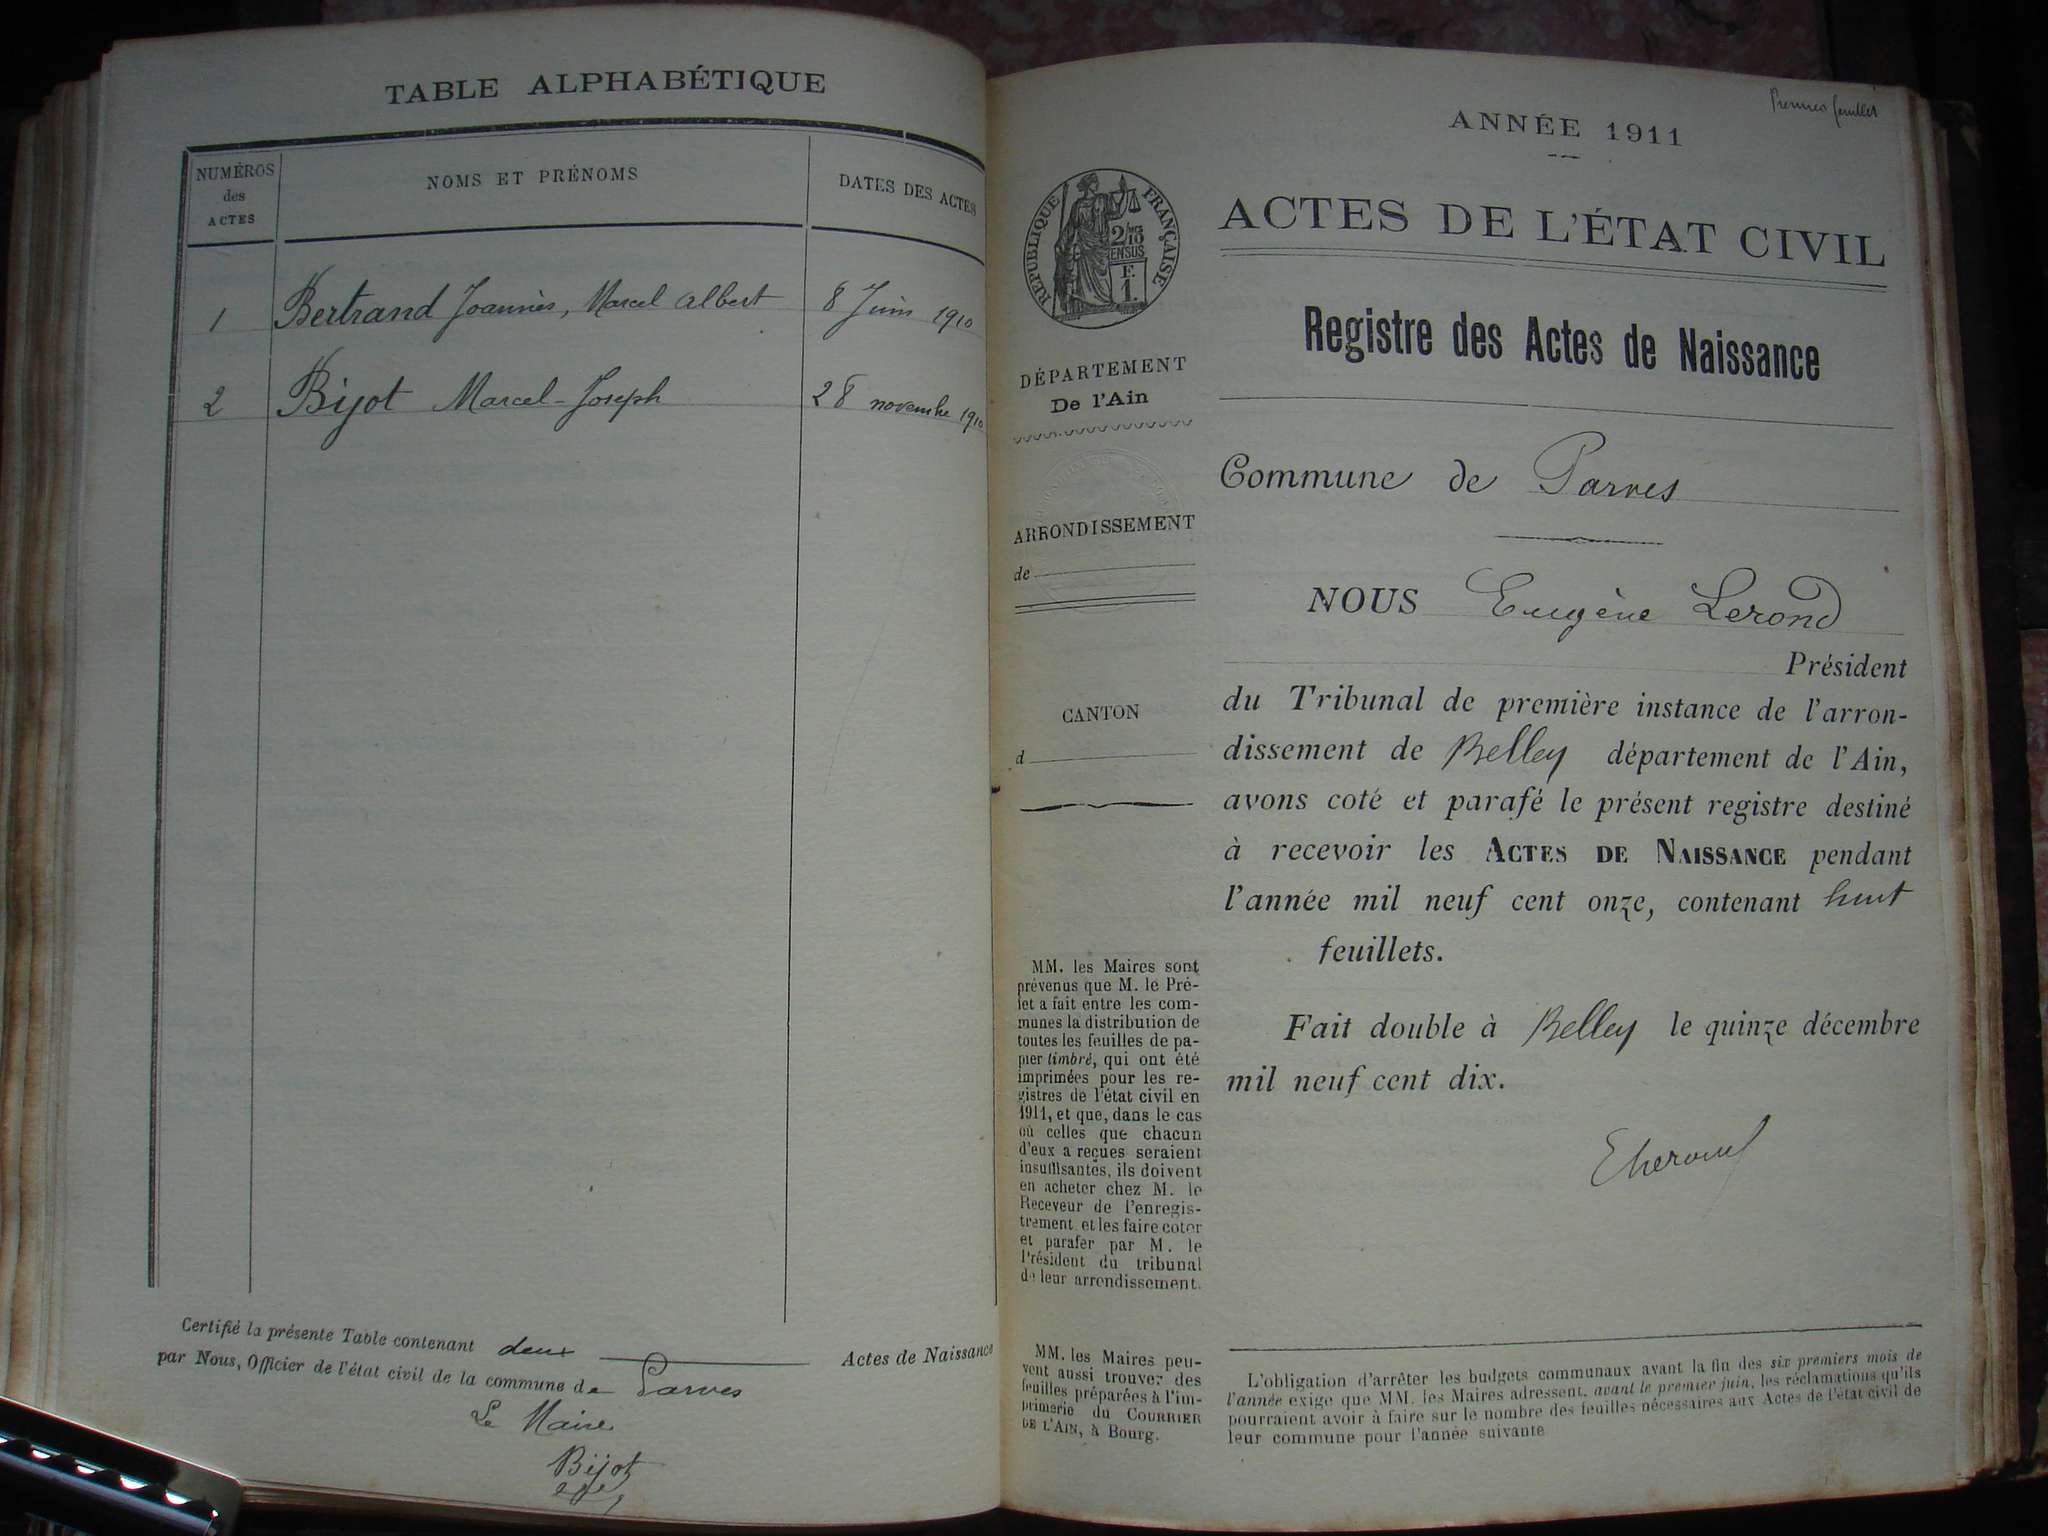 TABLE ALPHABÉTIQUE
NUMÉROS
des
ACTES
NOMS ET PRÉNOMS
DATES DES ACTES
1 Bertrand Joannès, Marcel Albert 8 Juin 1910
2 Bijot Marcel-Joseph 28 novembre 1910
Certifié la présente Table contenant deux Actes de Naissance
par Nous, Officier de l'état civil de la commune de Parves
Le Maire
Bijot
Premier feuillet
ANNÉE 1911
ACTES DE L'ÉTAT CIVIL
RÉPUBLIQUE FRANÇAISE
2/10
EN SUS
F.
1.
Registre des Actes de Naissance
DÉPARTEMENT
De l'Ain
Commune de Parves
ARRONDISSEMENT
de
NOUS Eugène Lerond
Président
CANTON
d
du Tribunal de première instance de l'arron-
dissement de Belley département de l'Ain,
avons coté et parafé le présent registre destiné
à recevoir les ACTES DE NAISSANCE pendant
l'année mil neuf cent onze, contenant huit
feuillets.
Fait double à Belley le quinze décembre
mil neuf cent dix.
ELerond
MM. les Maires sont
prévenus que M. le Pré-
fet a fait entre les com-
munes la distribution de
toutes les feuilles de pa-
pier timbré, qui ont été
imprimées pour les re-
gistres de l'état civil en
1911, et que, dans le cas
où celles que chacun
d'eux a reçues seraient
insuffisantes, ils doivent
en acheter chez M. le
Receveur de l'enregis-
trement et les faire coter
et parafer par M. le
Président du tribunal
de leur arrondissement.
MM. les Maires peu-
vent aussi trouver des
feuilles préparées à l'im-
primerie du COURRIER
DE L'AIN, à Bourg.
L'obligation d'arrêter les budgets communaux avant la fin des six premiers mois de
l'année exige que MM. les Maires adressent, avant le premier juin, les réclamations qu'ils
pourraient avoir à faire sur le nombre des feuilles nécessaires aux Actes de l'état civil de
leur commune pour l'année suivante